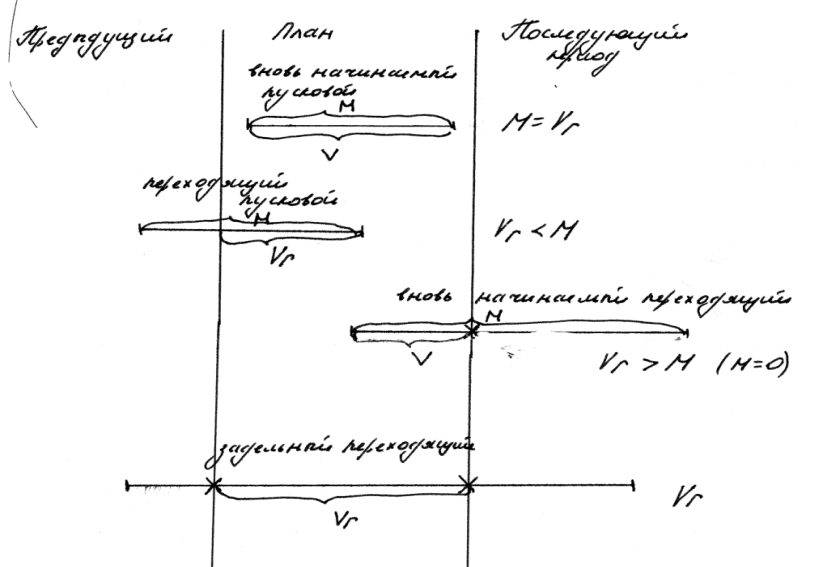 Предыдущий
План
Последующий
период
вновь начинаемый
пусковой
М
V
М = Vг
переходящий
пусковой
М
Vг
Vг < М
вновь начинаемый переходящий
М
V
Vг > М (М=0)
задельный переходящий
Vг
Vг